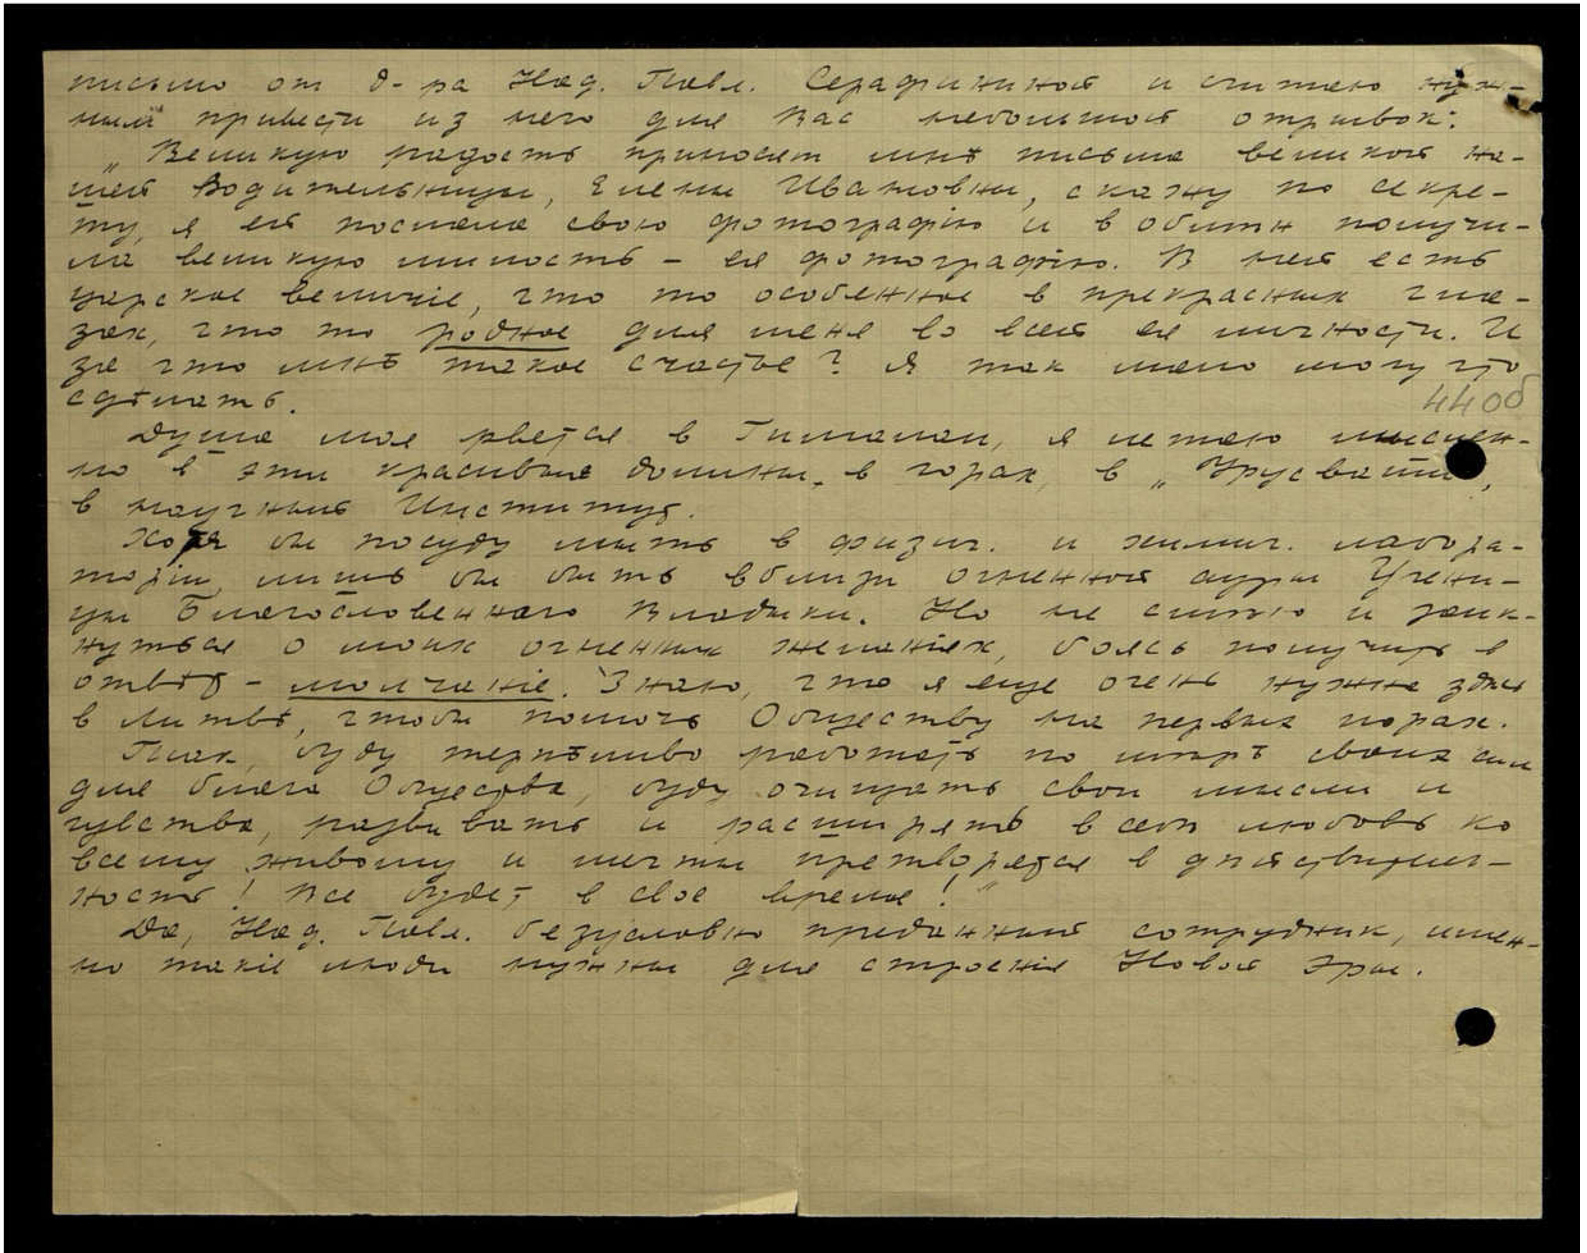 письмо от д-ра Над. Павл. Серафининой и считаю нуж-
ным привести из него для Вас небольшой отрывок:
„Великую радость приносят мнѣ письма великой на-
шей Водительницы, Елены Ивановны, скажу по секре-
ту, я ей послала свою фотографію и в обмѣн получи-
ла великую милость – ея фотографію. В ней есть
царское величіе, что то особенное в прекрасных гла-
зах, что то родное для меня во всей ея личности. И
за что мнѣ такое счастье? Я так мало могу что
сдѣлать.
44об
Душа моя рвется в Гималаи, я летаю мыслен-
но в эти красивые долины, в горах, в „Урусвати",
в научный Институт.
Хотя бы посуду мыть в физич. и химич. лабора-
торіи, лишь бы быть вблизи огненной ауры Учени-
цы Благословенного Владыки. Но не смѣю и заик-
нуться о моих огненных желаніях, боясь получить в
отвѣт – молчаніе. Знаю, что я еще очень нужна здѣсь
в Литвѣ, чтобы помочь Обществу на первых порах.
Так, буду терпѣливо работать по мѣрѣ своих сил
для блага Общества, буду очищать свои мысли и
чувства, развивать и расширять в себѣ любовь ко
всему живому и мечты претворятся в дѣйствитель-
ность! Все будет в свое время!"
Да, Над. Павл. безусловно преданный сотрудник, имен-
но такіе люди нужны для строенія Новой Эры.